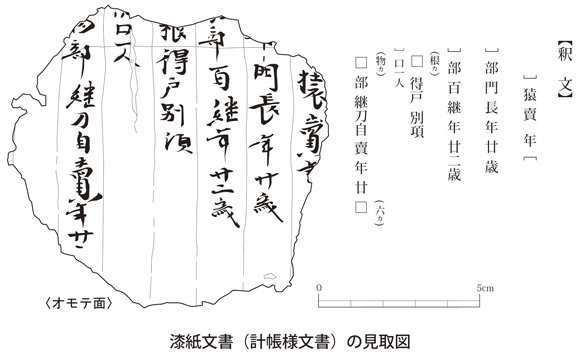 【釈文】
］猿賣 年［
］部門長年廿歳
］部百継年廿二歳
(根ヵ)
□得戸別項
］口一人
(物ヵ)
□部継刀自賣年廿□
(六ヵ)
猿賣年
門長年廿歳
部百継年廿二歳
根得戸別項
口一人
部継刀自賣年廿
〈オモテ面〉
0 5cm
漆紙文書（計帳様文書）の見取図